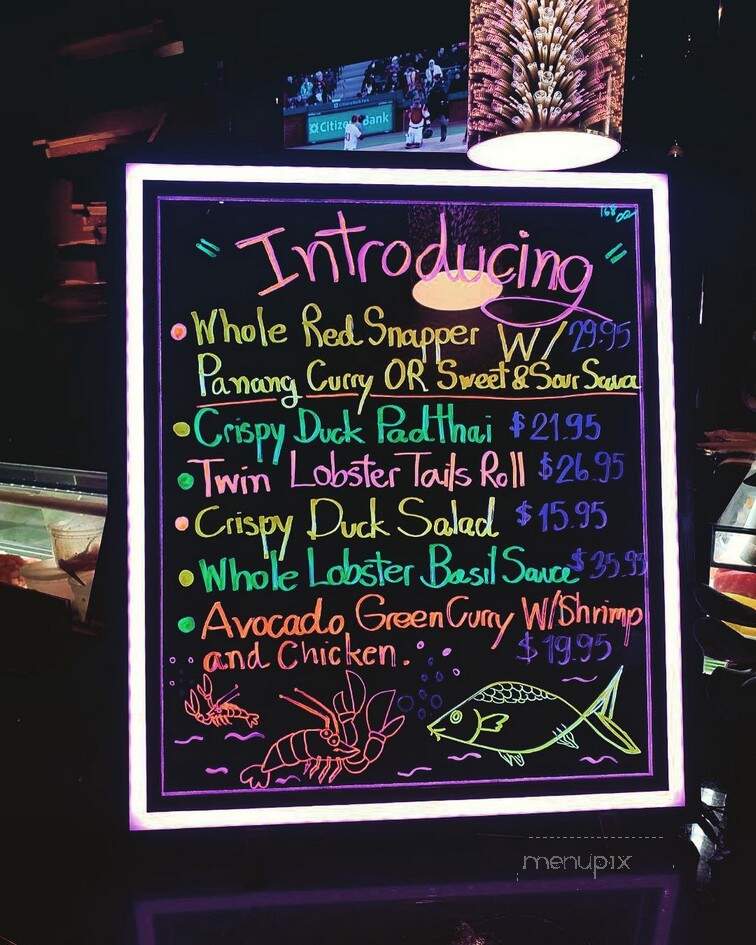 Citizens Bank
168
Introducing
Whole Red Snapper W/ 29.95
Panang Curry OR Sweet & Sour Sauce
Crispy Duck Padthai $21.95
Twin Lobster Tails Roll $26.95
Crispy Duck Salad $15.95
Whole Lobster Basil Sauce $35.95
Avocado Green Curry W/Shrimp
and Chicken. $19.95
menupix